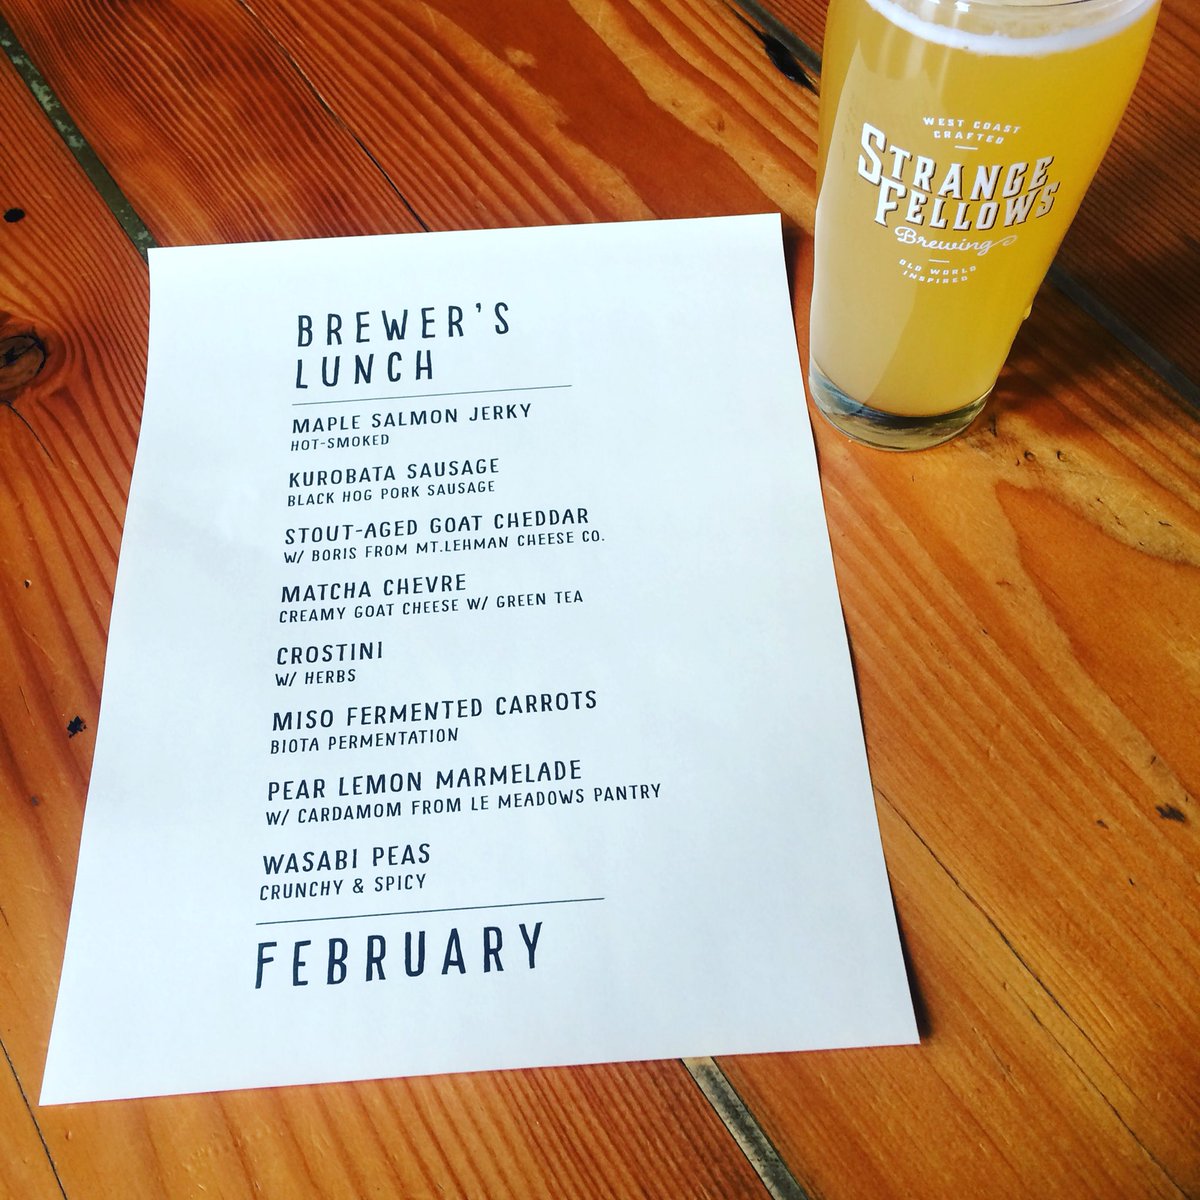 BREWER'S
LUNCH
MAPLE SALMON JERKY
HOT-SMOKED
KUROBATA SAUSAGE
BLACK HOG PORK SAUSAGE
STOUT-AGED GOAT CHEDDAR
W/ BORIS FROM MT.LEHMAN CHEESE CO.
MATCHA CHEVRE
CREAMY GOAT CHEESE W/ GREEN TEA
CROSTINI
W/ HERBS
MISO FERMENTED CARROTS
BIOTA PERMENTATION
PEAR LEMON MARMELADE
W/ CARDAMOM FROM LE MEADOWS PANTRY
WASABI PEAS
CRUNCHY & SPICY
FEBRUARY
WEST COAST
CRAFTED
STRANGE
FELLOWS
Brewing
OLD WORLD
INSPIRED